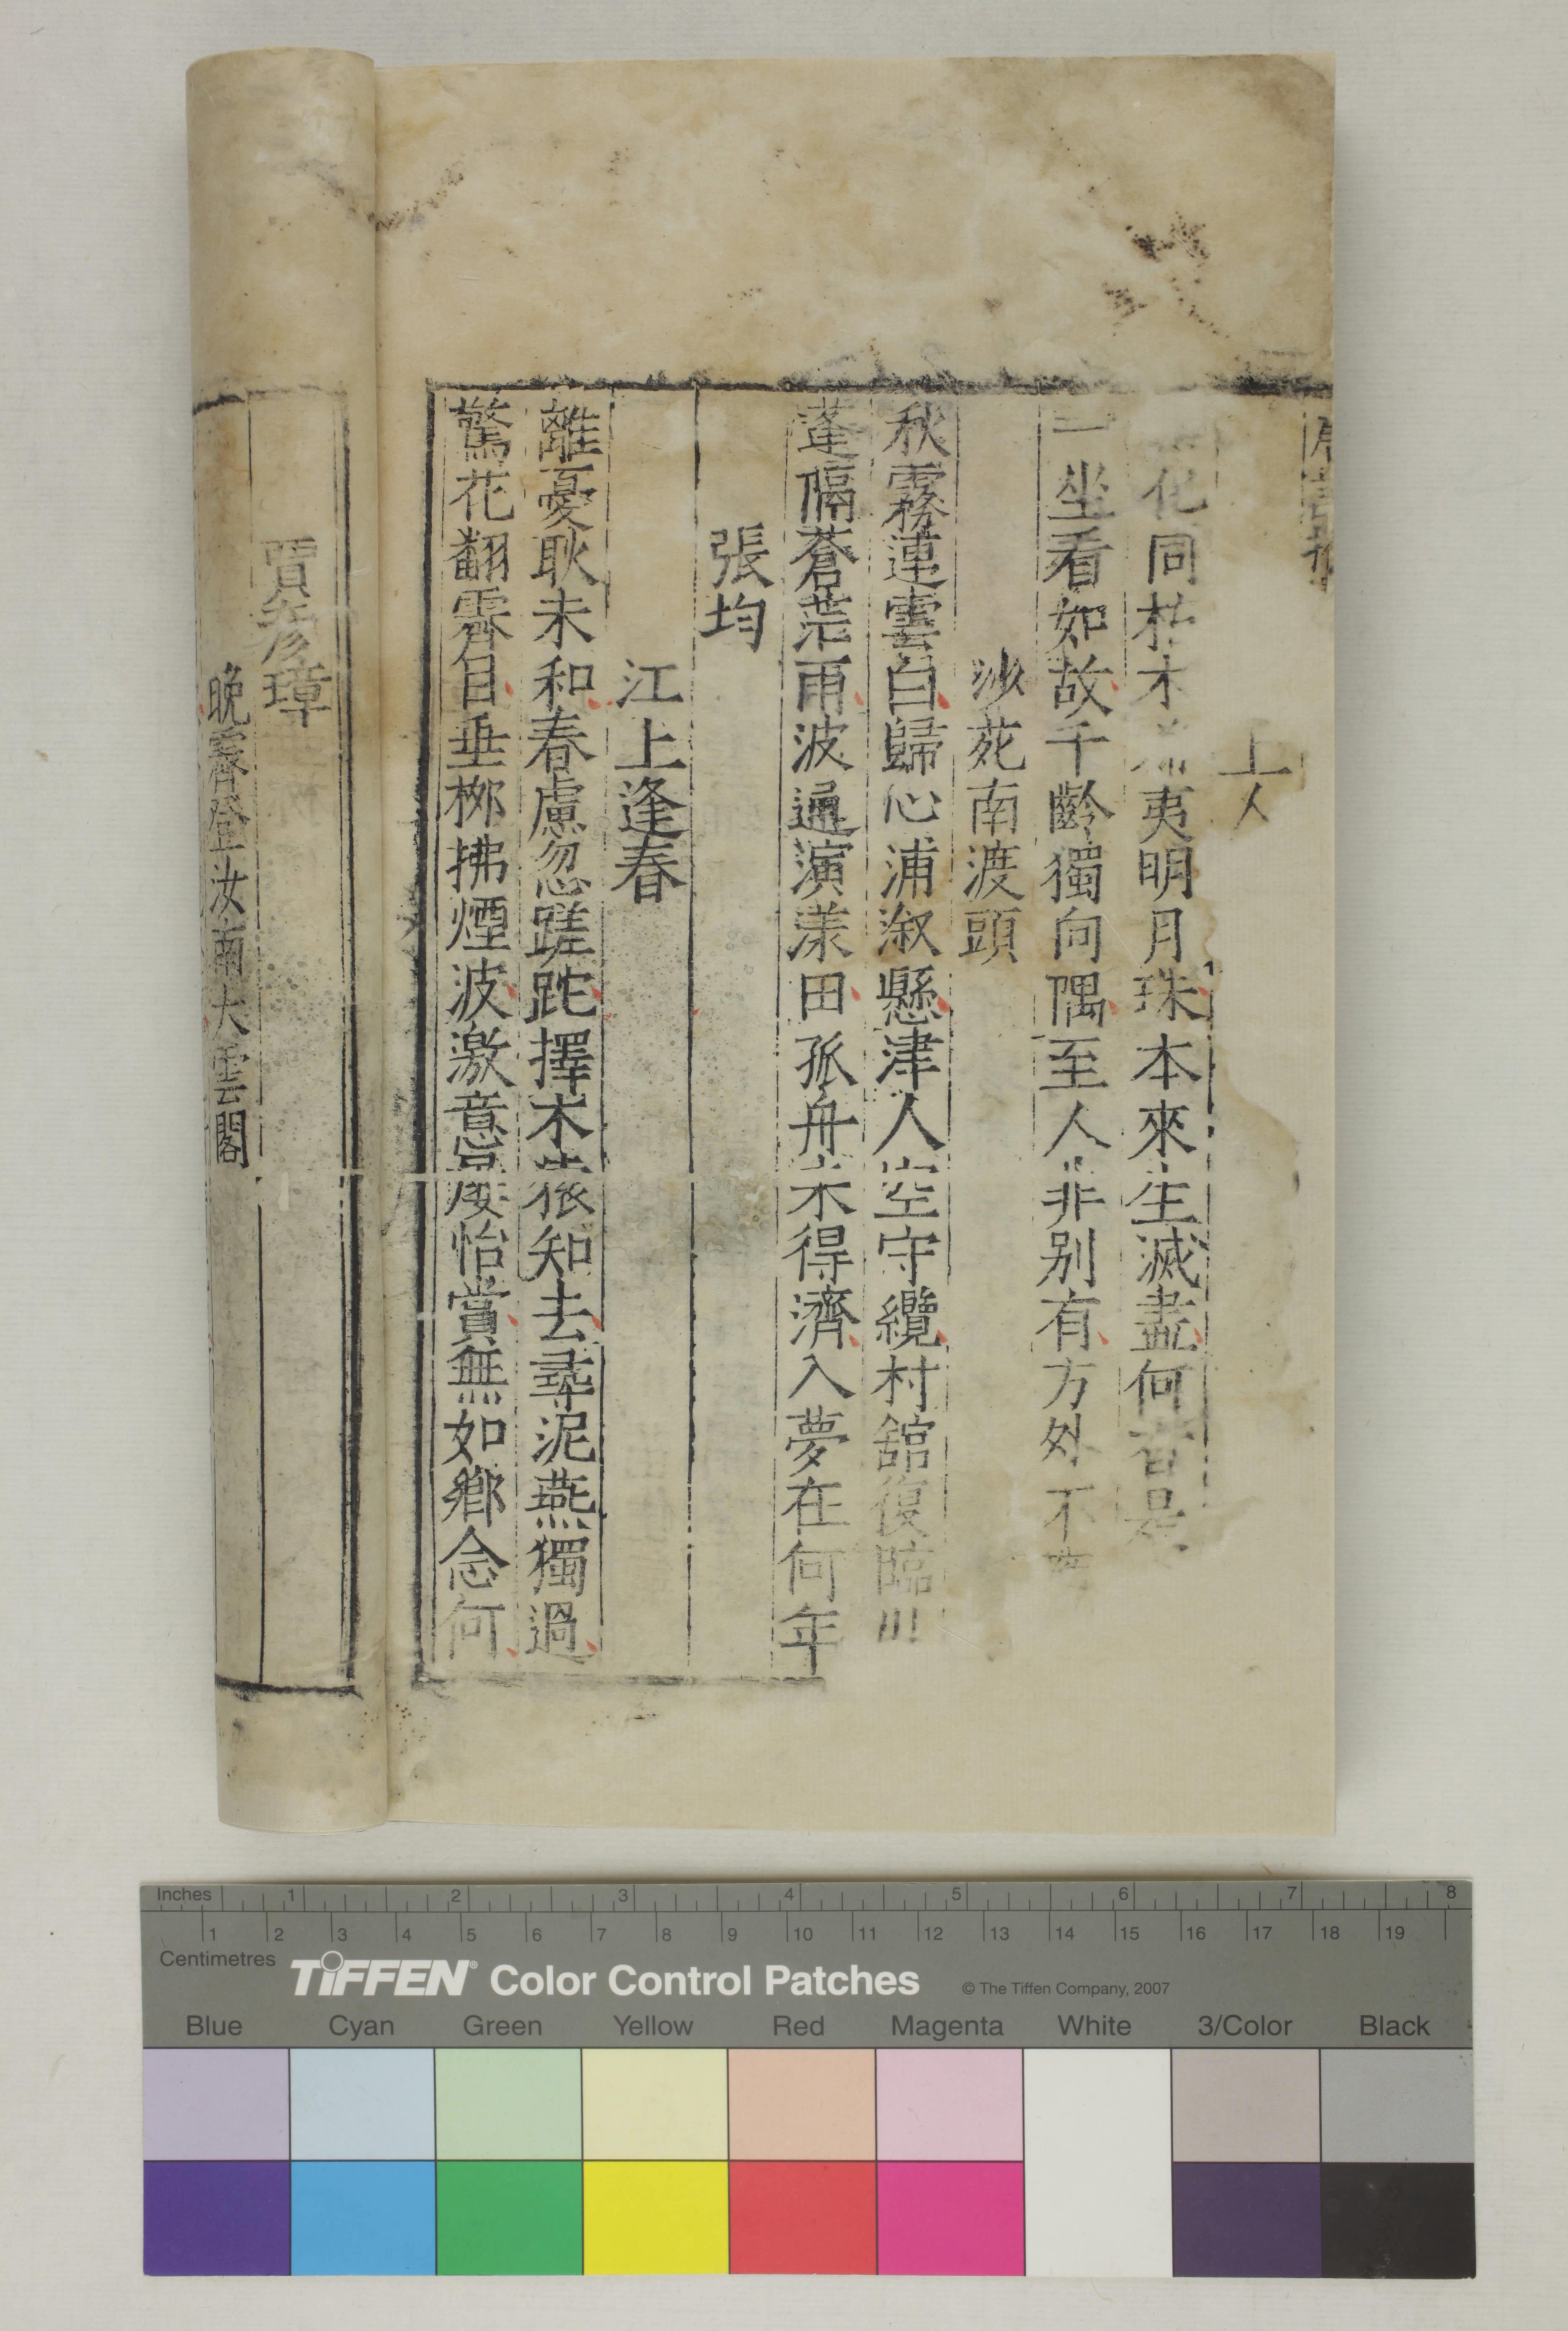 上人
化同枯木 夷明月珠本來生滅盡何者是
一坐看如故千齡獨向隅至人非别有方外不
沙苑南渡頭
秋霧連雲白歸心浦溆懸津人空守纜村舘復臨川
蓬隔蒼茫雨波通演漾田孤舟未得濟入夢在何年
張均
江上逢春
離憂耿未和春慮忽蹉跎擇木猿知去尋泥燕獨過
驚花翻霽日垂桞拂煙波激意屢怡賞無如鄉念何
賈彦璋
晩霽登汝南大雲閣
Inches 1 2 3 4 5 6 7 8
1 2 3 4 5 6 7 8 9 10 11 12 13 14 15 16 17 18 19
Centimetres
TIFFEN® Color Control Patches © The Tiffen Company, 2007
Blue Cyan Green Yellow Red Magenta White 3/Color Black